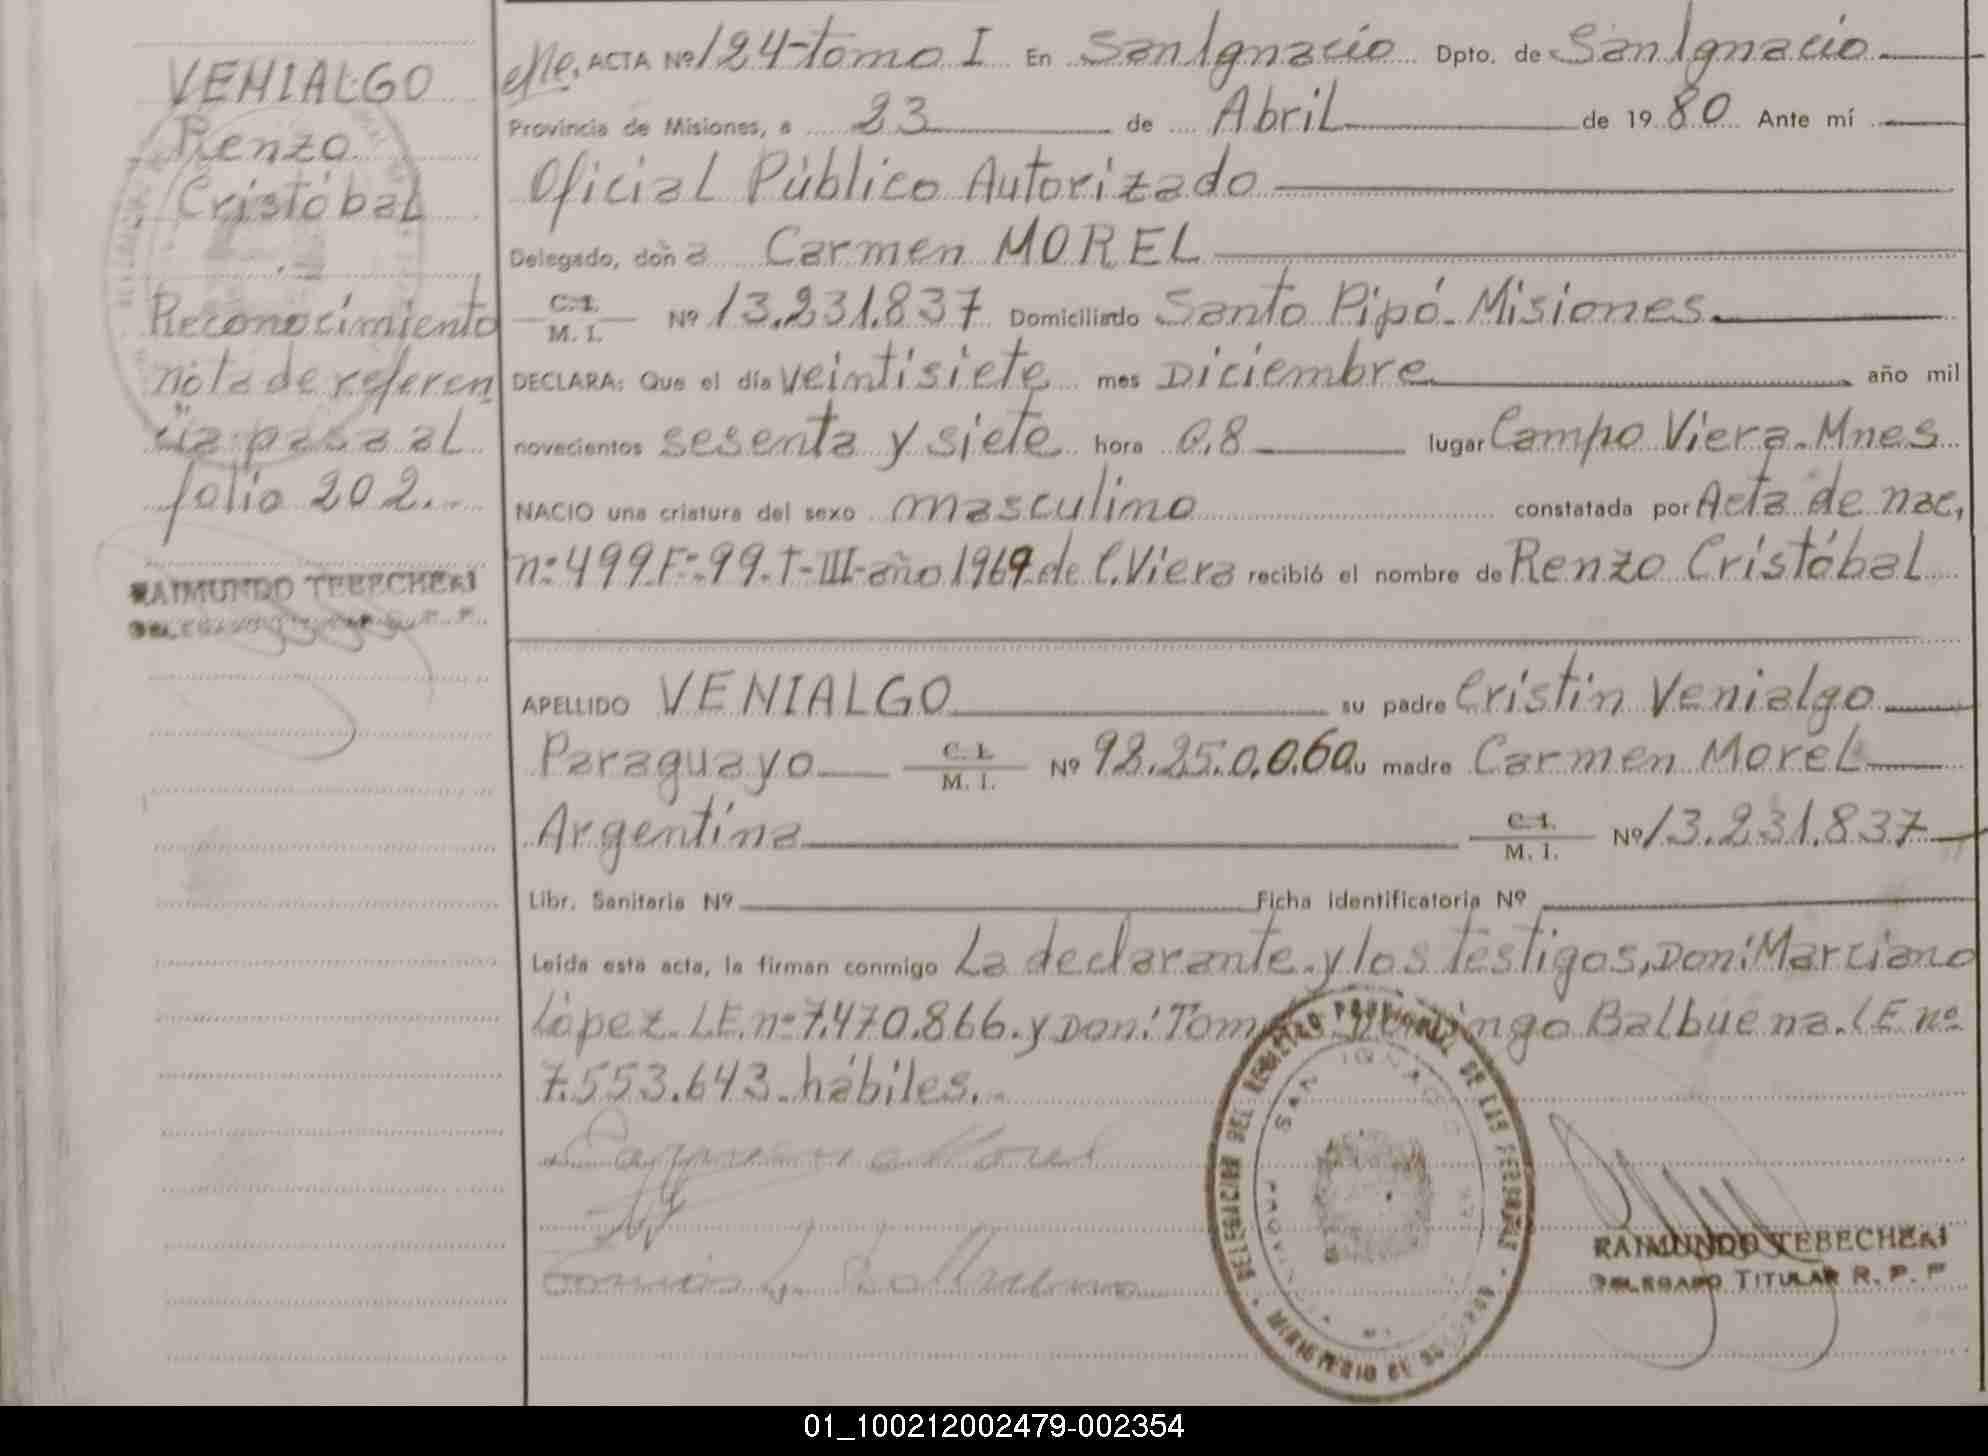 VENIALGO
Renzo
Cristóbal
Reconocimiento
nota de referen
cia pasa al
folio 202.-
RAIMUNDO TEBECHERI
DELEGADO TITULAR R. P. P.
ACTA Nº 124-tomo I En San Ignacio Dpto. de San Ignacio
Provincia de Misiones, a 23 de Abril de 1980 Ante mí
Oficial Público Autorizado
Delegado, doña Carmen MOREL
C. I. / M. I. Nº 13.231.837 Domiciliado Santo Pipó-Misiones.
DECLARA: Que el día veintisiete mes Diciembre año mil
novecientos sesenta y siete hora 0,8 lugar Campo Viera-Mnes
NACIO una criatura del sexo masculino constatada por Acta de nac,
nº 499.Fº 99.T-III-año 1969 de C.Viera recibió el nombre de Renzo Cristóbal
APELLIDO VENIALGO su padre Cristin Venialgo
Paraguayo C. I. / M. I. Nº 92.250.060 su madre Carmen Morel
Argentina C. I. / M. I. Nº 13.231.837
Libr. Sanitaria Nº Ficha identificatoria Nº
Leída esta acta, la firman conmigo La declarante y los testigos, Don: Marciano
López. LE. nº 7.470.866. y Don: Tomás Domingo Balbuena. LE nº
7.553.643-hábiles.-
Carmen Morel
DELEGACION DEL REGISTRO PROVINCIAL DE LAS PERSONAS
SAN IGNACIO
MINISTERIO DE GOBIERNO
RAIMUNDO TEBECHERI
DELEGADO TITULAR R. P. P
01_100212002479-002354